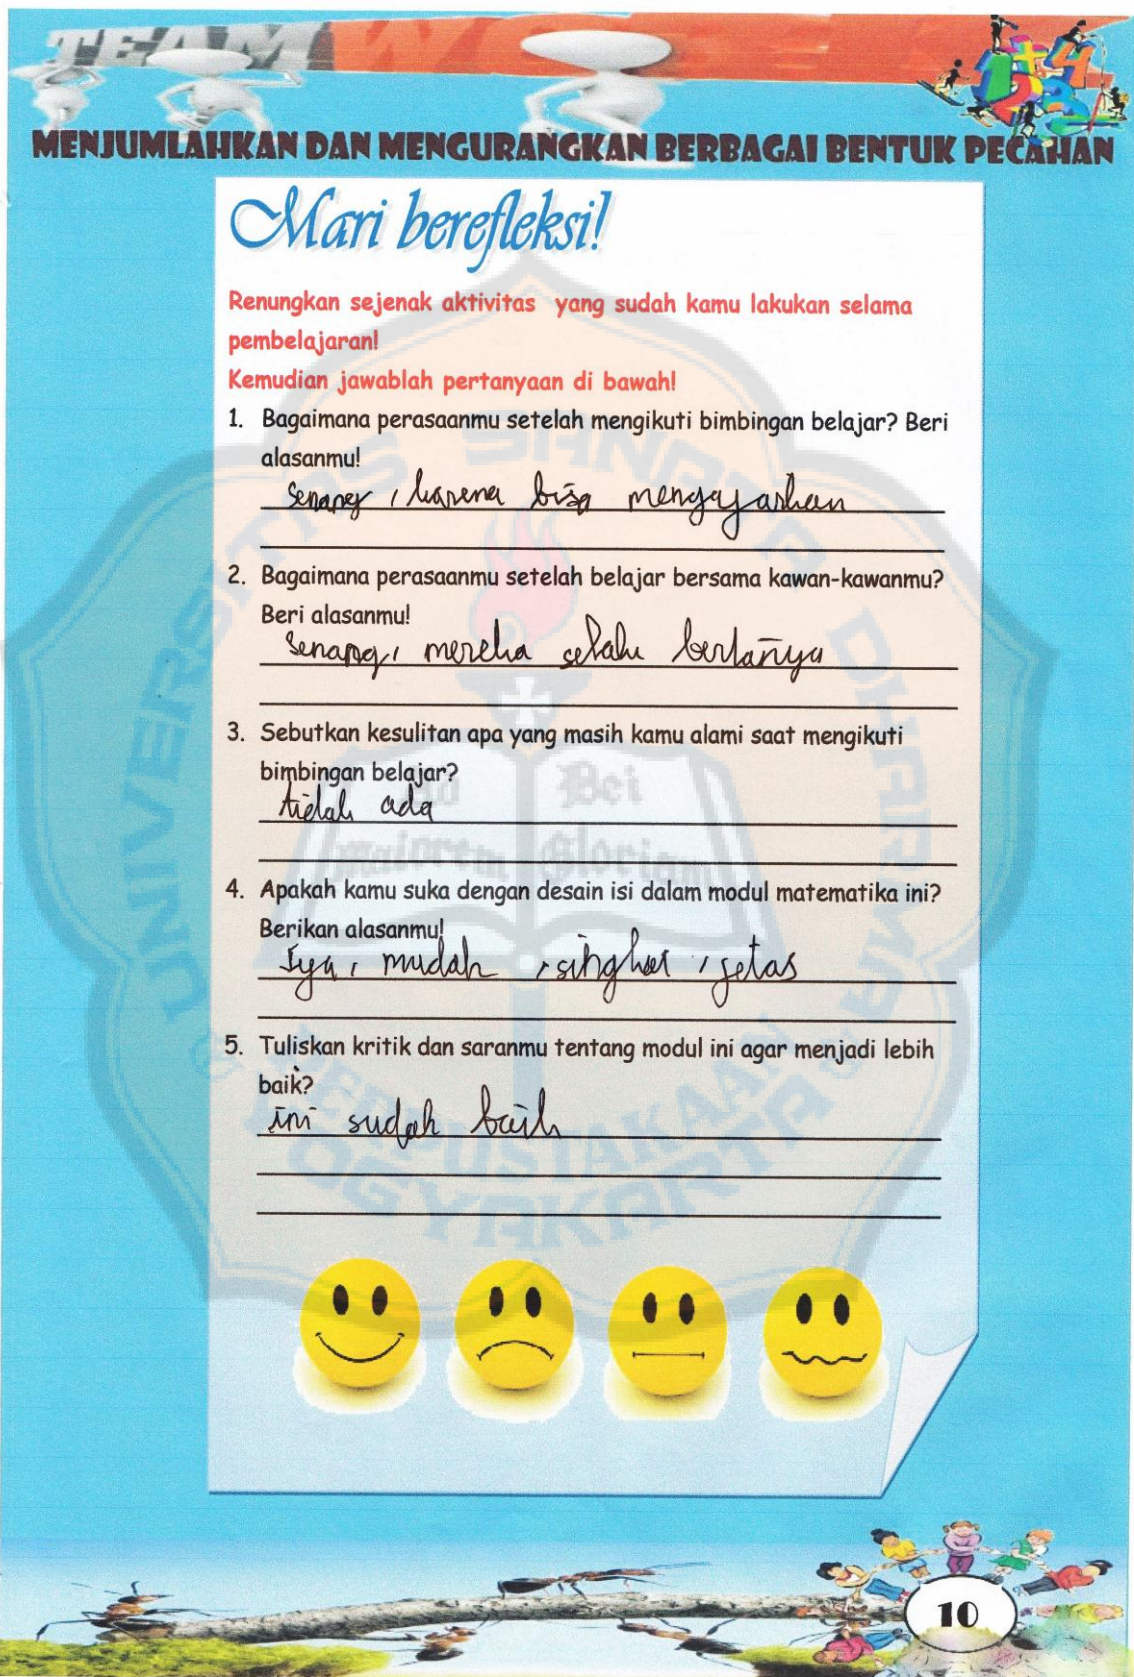 TEAMWORK
MENJUMLAHKAN DAN MENGURANGKAN BERBAGAI BENTUK PECAHAN
Mari berefleksi!
Renungkan sejenak aktivitas yang sudah kamu lakukan selama
pembelajaran!
Kemudian jawablah pertanyaan di bawah!
1. Bagaimana perasaanmu setelah mengikuti bimbingan belajar? Beri
alasanmu!
Senang, karena bisa mengajarkan
2. Bagaimana perasaanmu setelah belajar bersama kawan-kawanmu?
Beri alasanmu!
Senang, mereka selalu bertanya
3. Sebutkan kesulitan apa yang masih kamu alami saat mengikuti
bimbingan belajar?
tidak ada
4. Apakah kamu suka dengan desain isi dalam modul matematika ini?
Berikan alasanmu!
Iya, mudah, singkat, jelas
5. Tuliskan kritik dan saranmu tentang modul ini agar menjadi lebih
baik?
ini sudah baik
UNIVERSITAS SANATA DHARMA
Ad Dei
maiorem Gloriam
PERPUSTAKAAN
YOGYAKARTA
10